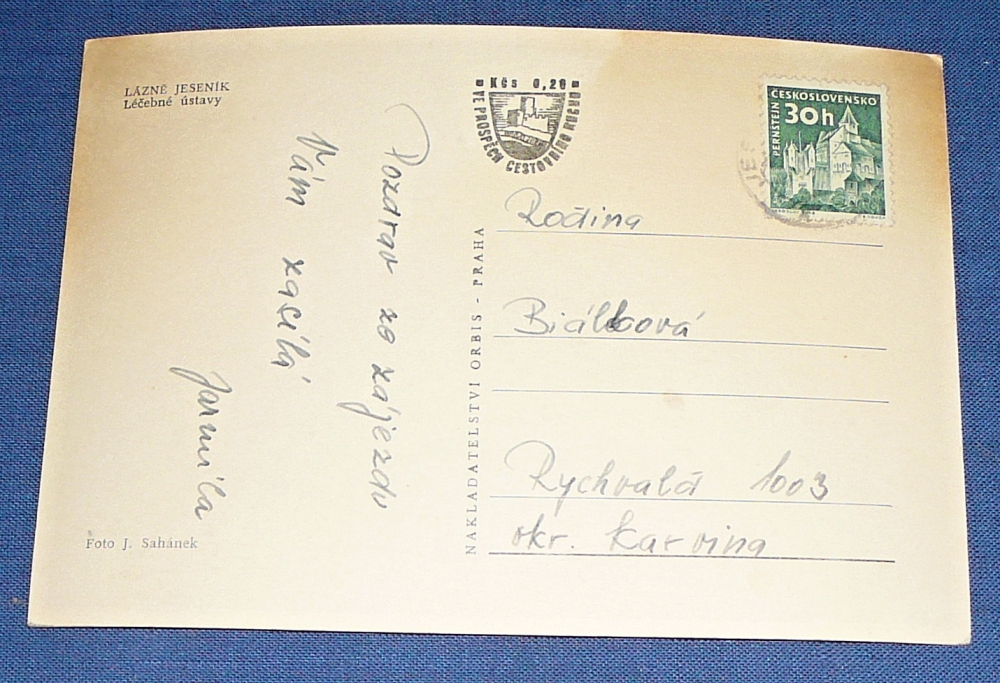 LÁZNĚ JESENÍK
Léčebné ústavy
Pozdrav ze zájezdu
Vám zasílá
Jarmila
Foto J. Sahánek
NAKLADATELSTVÍ ORBIS - PRAHA
Kčs 0,20
VE PROSPĚCH CESTOVNÍHO RUCHU
ČESKOSLOVENSKO
30h
PERNŠTEJN
Rodina
Biálková
Rychvald 1003
okr. Karvina